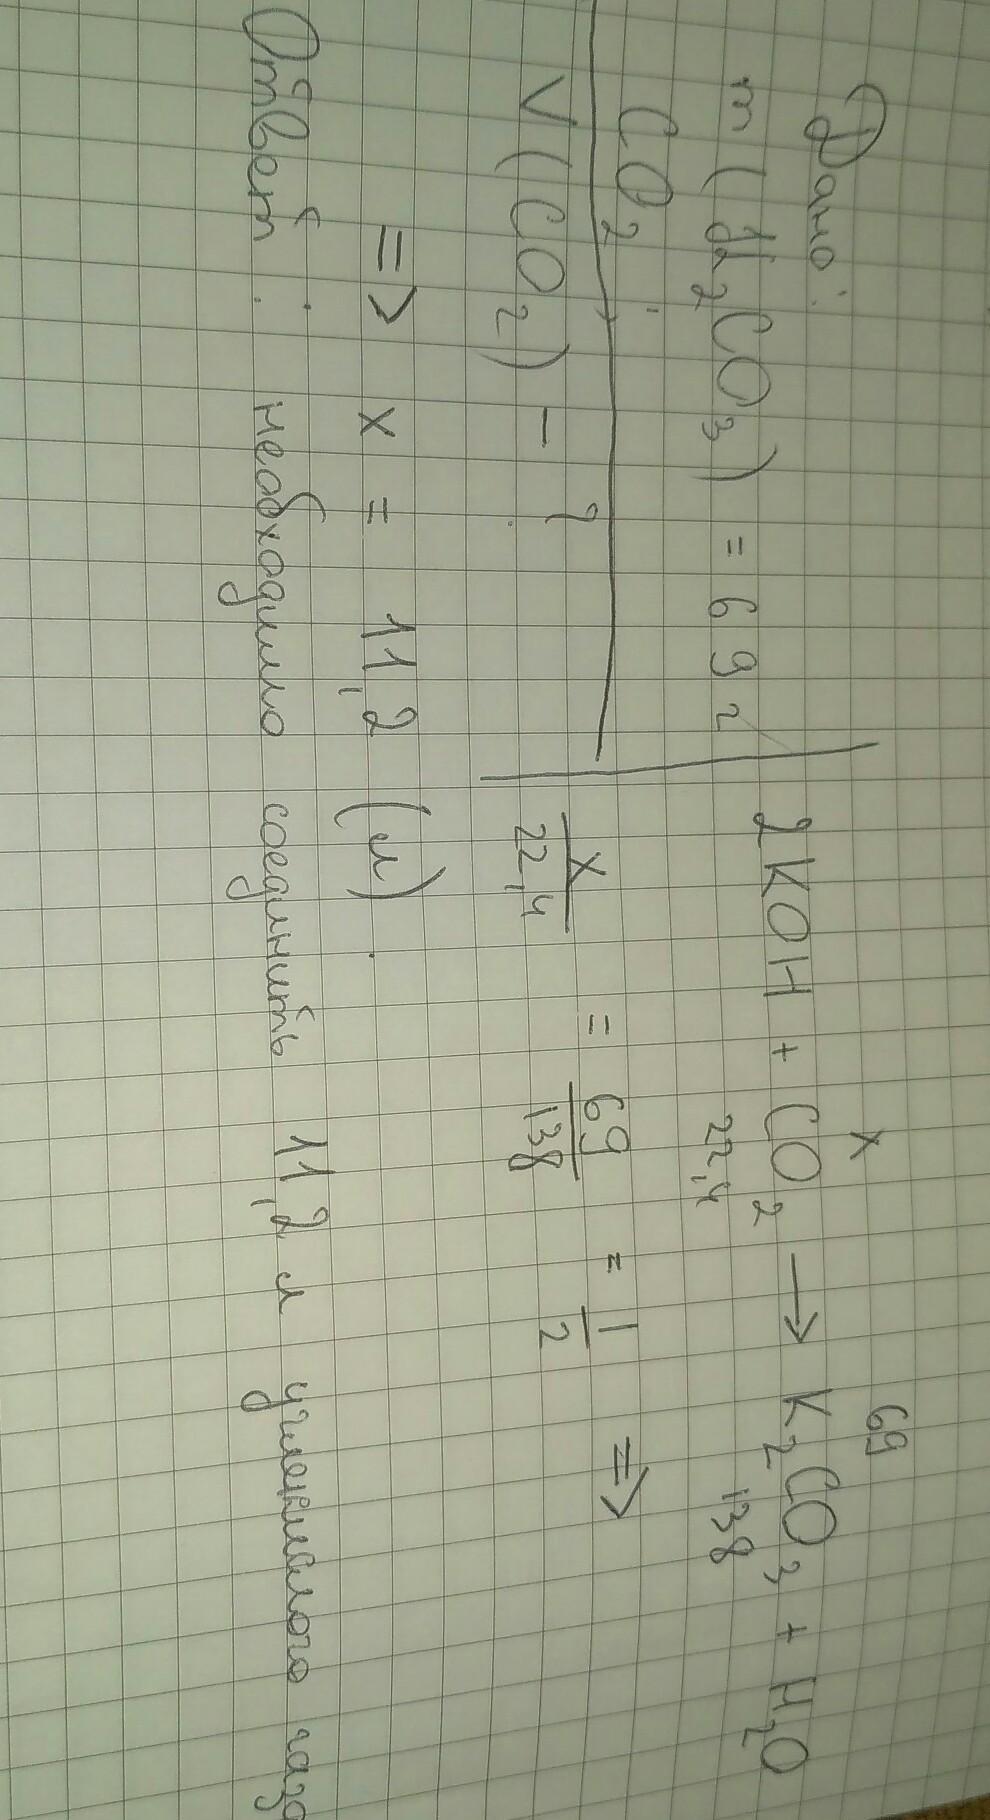 Дано:
m(K₂CO₃) = 69 г
CO₂;
V(CO₂) - ?
x 69
2KOH + CO₂ → K₂CO₃ + H₂O
22,4 138
x/22,4 = 69/138 = 1/2 =>
=> x = 11,2 (л).
Ответ: необходимо соединить 11,2 л углекислого газа